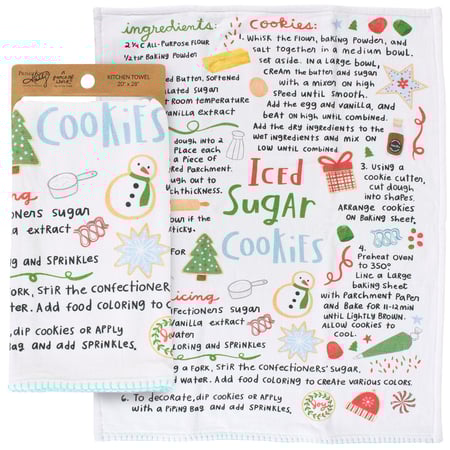 KITCHEN TOWEL
20" x 28"
COOKIES
cing
ctioners sugar
a extract
ng and sprinkles
fork, stir the confectioner
r. Add food coloring to c
dip cookies or apply
bag and add sprinkles.
ingredients:
2 ¼ c All-purpose flour
tsp Baking powder
Butter, softened
ulated sugar
Room temperature
anilla extract
dough into 2
Place each
a piece of
red parchment.
ough out to
thickness.
own if the
sticky.
for
cookies:
1. Whisk the flour, baking powder, and
salt together in a medium bowl.
Set aside. In a large bowl,
cream the butter and sugar
with a mixer on high
speed until smooth.
Add the egg and vanilla, and
beat on high until combined.
Add the dry ingredients to the
wet ingredients and mix on
low until combined.
Iced
Sugar
Cookies
3. Using a
cookie cutter,
cut dough
into shapes.
Arrange cookies
on baking sheet.
4.
Preheat oven to
350°.
Line a large
baking sheet
with parchment paper
and bake for 11-12 min
until lightly brown.
Allow cookies to
cool.
icing
fectioners sugar
anilla extract
water
oloring and sprinkles
g a fork, stir the confectioners' sugar,
d water. Add food coloring to create various colors.
6. To decorate, dip cookies or apply
with a piping bag and add sprinkles.
Joy